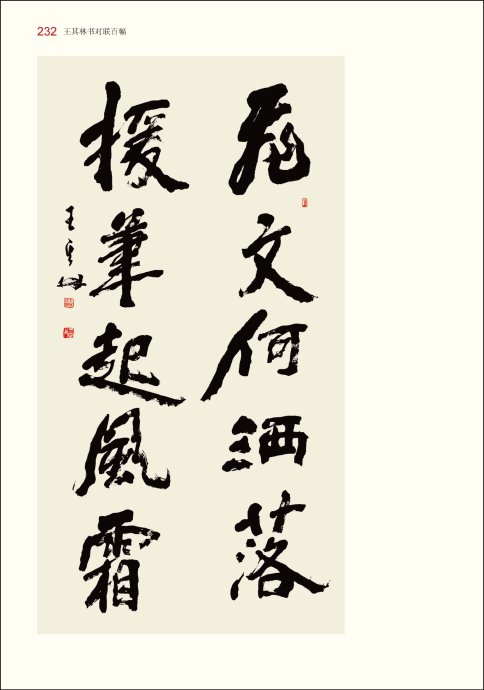 232 王其林书对联百幅
飛文何洒落
援筆起風霜
王其林